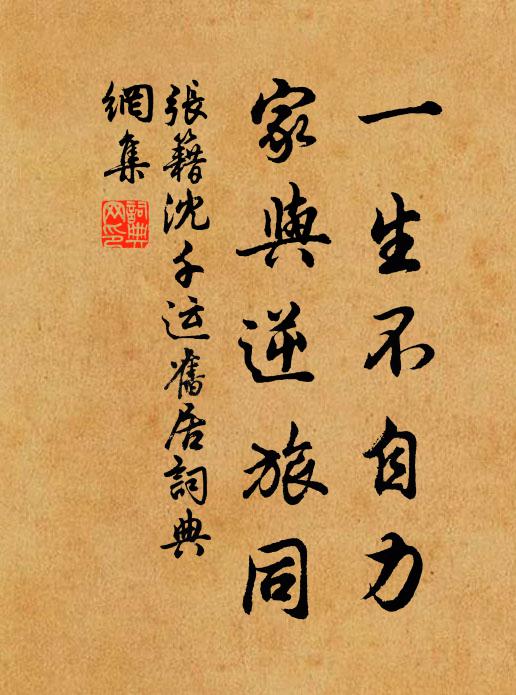 一生不自力
家與逆旅同
張籍沈千运舊居詞典
網集
詞典
网印